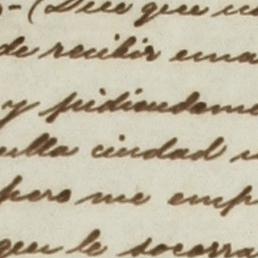 (Dice que
de recibir una
y pidiendome
ella ciudad
pero me emp
que le socorra